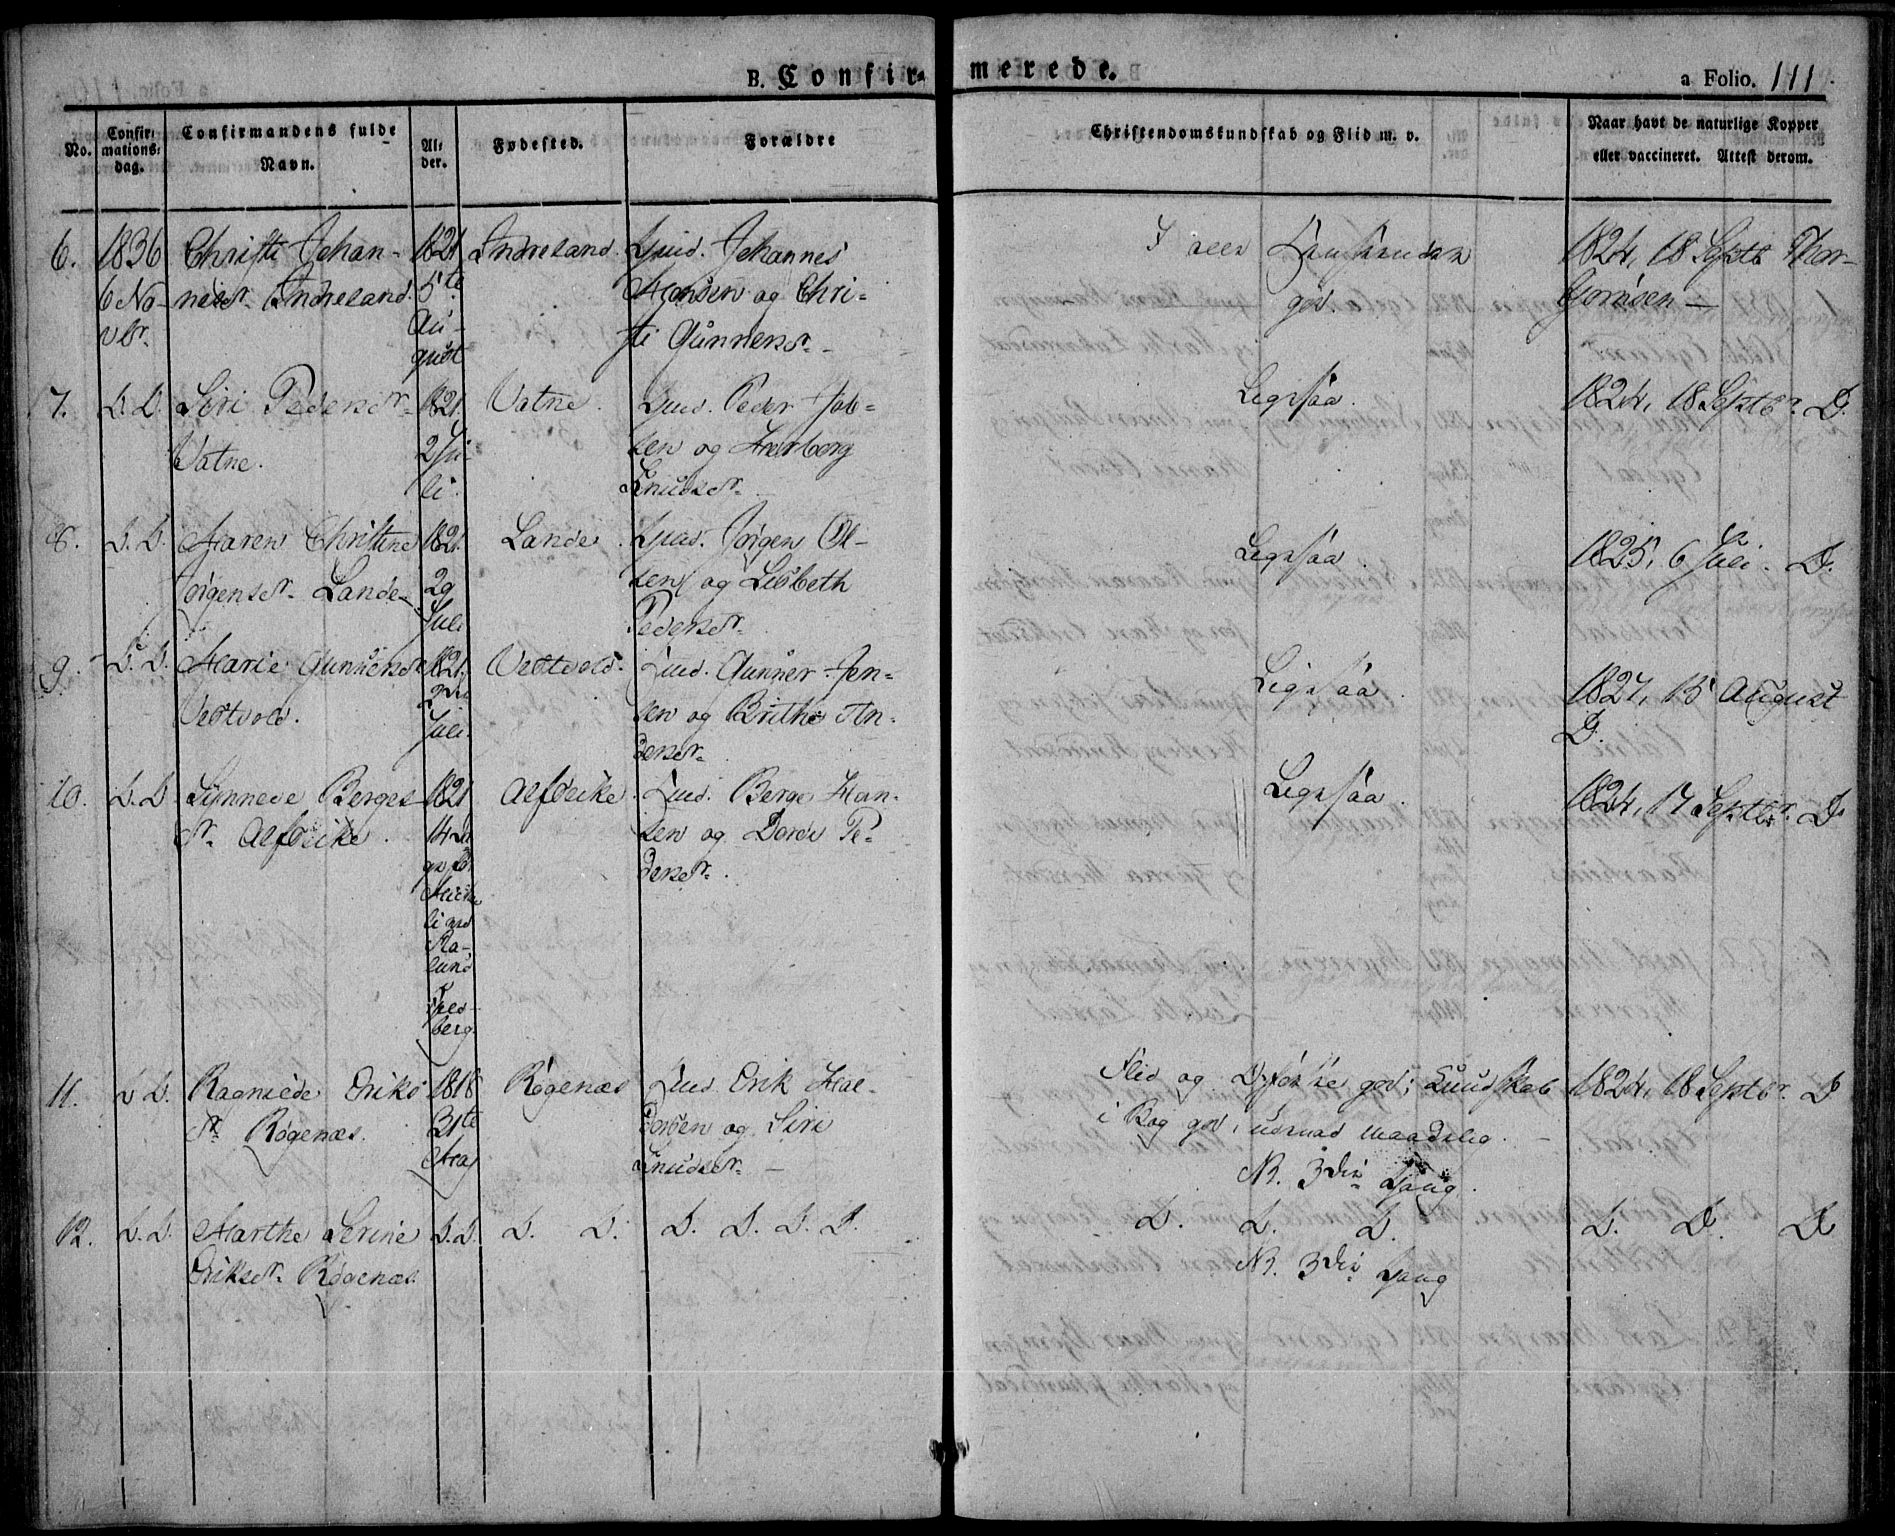 B. Confir=
merede.
a Folio. 111
No.
Confir:
mations:
dag.
Confirmandens fulde
Navn.
Al:
der.
Fødested.
Forældre
Christendomskundskab og Flid m. v.
Naar havt de naturlige Kopper
eller vaccineret. Attest derom.
6.
1836
6 No-
vbr.
Christi Johan-
nesdr. Indreland.
1821
5te
Au-
gust
Indreland.
Gmd. Johannes
og Chri-
sti Gunnersdr.
I alle
god.
1824, 18 Septb. Thor-
7.
D. D.
Siri Pedersdr.
Vatne.
1821.
2 Ju-
li.
Vatne.
Gmd. Peder Jab-
sen og
Knudsdr.
Ligesaa.
1824, 18 Septbr. D.
8.
D. D.
Maren Christine
Jørgensdr. Lande
1821.
29
Juli
Lande.
Gmd. Jørgen Ol-
sen og Lisbeth
Pedersdr.
Ligesaa.
1825, 6 Juli. D.
9.
D. D.
Marie Gunnersdr
Vestvold.
1821.
2den
Juli.
Vestvold.
Gmd. Gunner Jen-
sen og Brithe An-
dersdr.
Ligesaa.
1827, 15 August
D.
10.
D. D.
Sünneve Berges-
dr.
1821
Gmd. Berge Han-
sen og Dorde Pe-
dersdr.
Ligesaa.
1824, 17 Septbr. D.
11.
D. D.
Ragnilde Eriks
dr. Røgenæs.
1818
31te
Maj
Røgenæs
Gmd. Erik Hal-
vorsen og Siri
Knudsdr.
Flid og Opførsel god; Kundskab
i Bog god, udenad maadelig.
NB. 3die Gang.
1824, 18 Septbr. D.
12.
D. D.
Marthe Serine
Eriksdr. Røgenæs.
D. D.
D. D.
D. D. D. D.
D. D. D.
NB. 3die Gang
D. D. D.